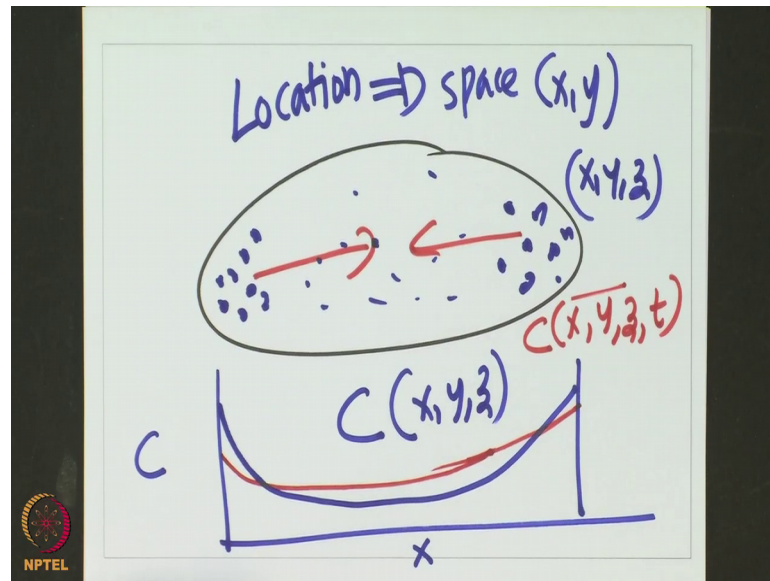 Location ⇒ space (x,y)
(x,y,z)
C(x,y,z,t)
C(x,y,z)
C
x
NPTEL